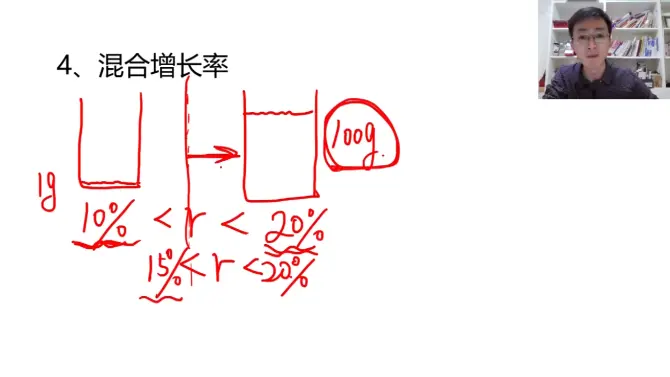 4、混合增长率
100g
1g
10% < r < 20%
15% < r < 20%